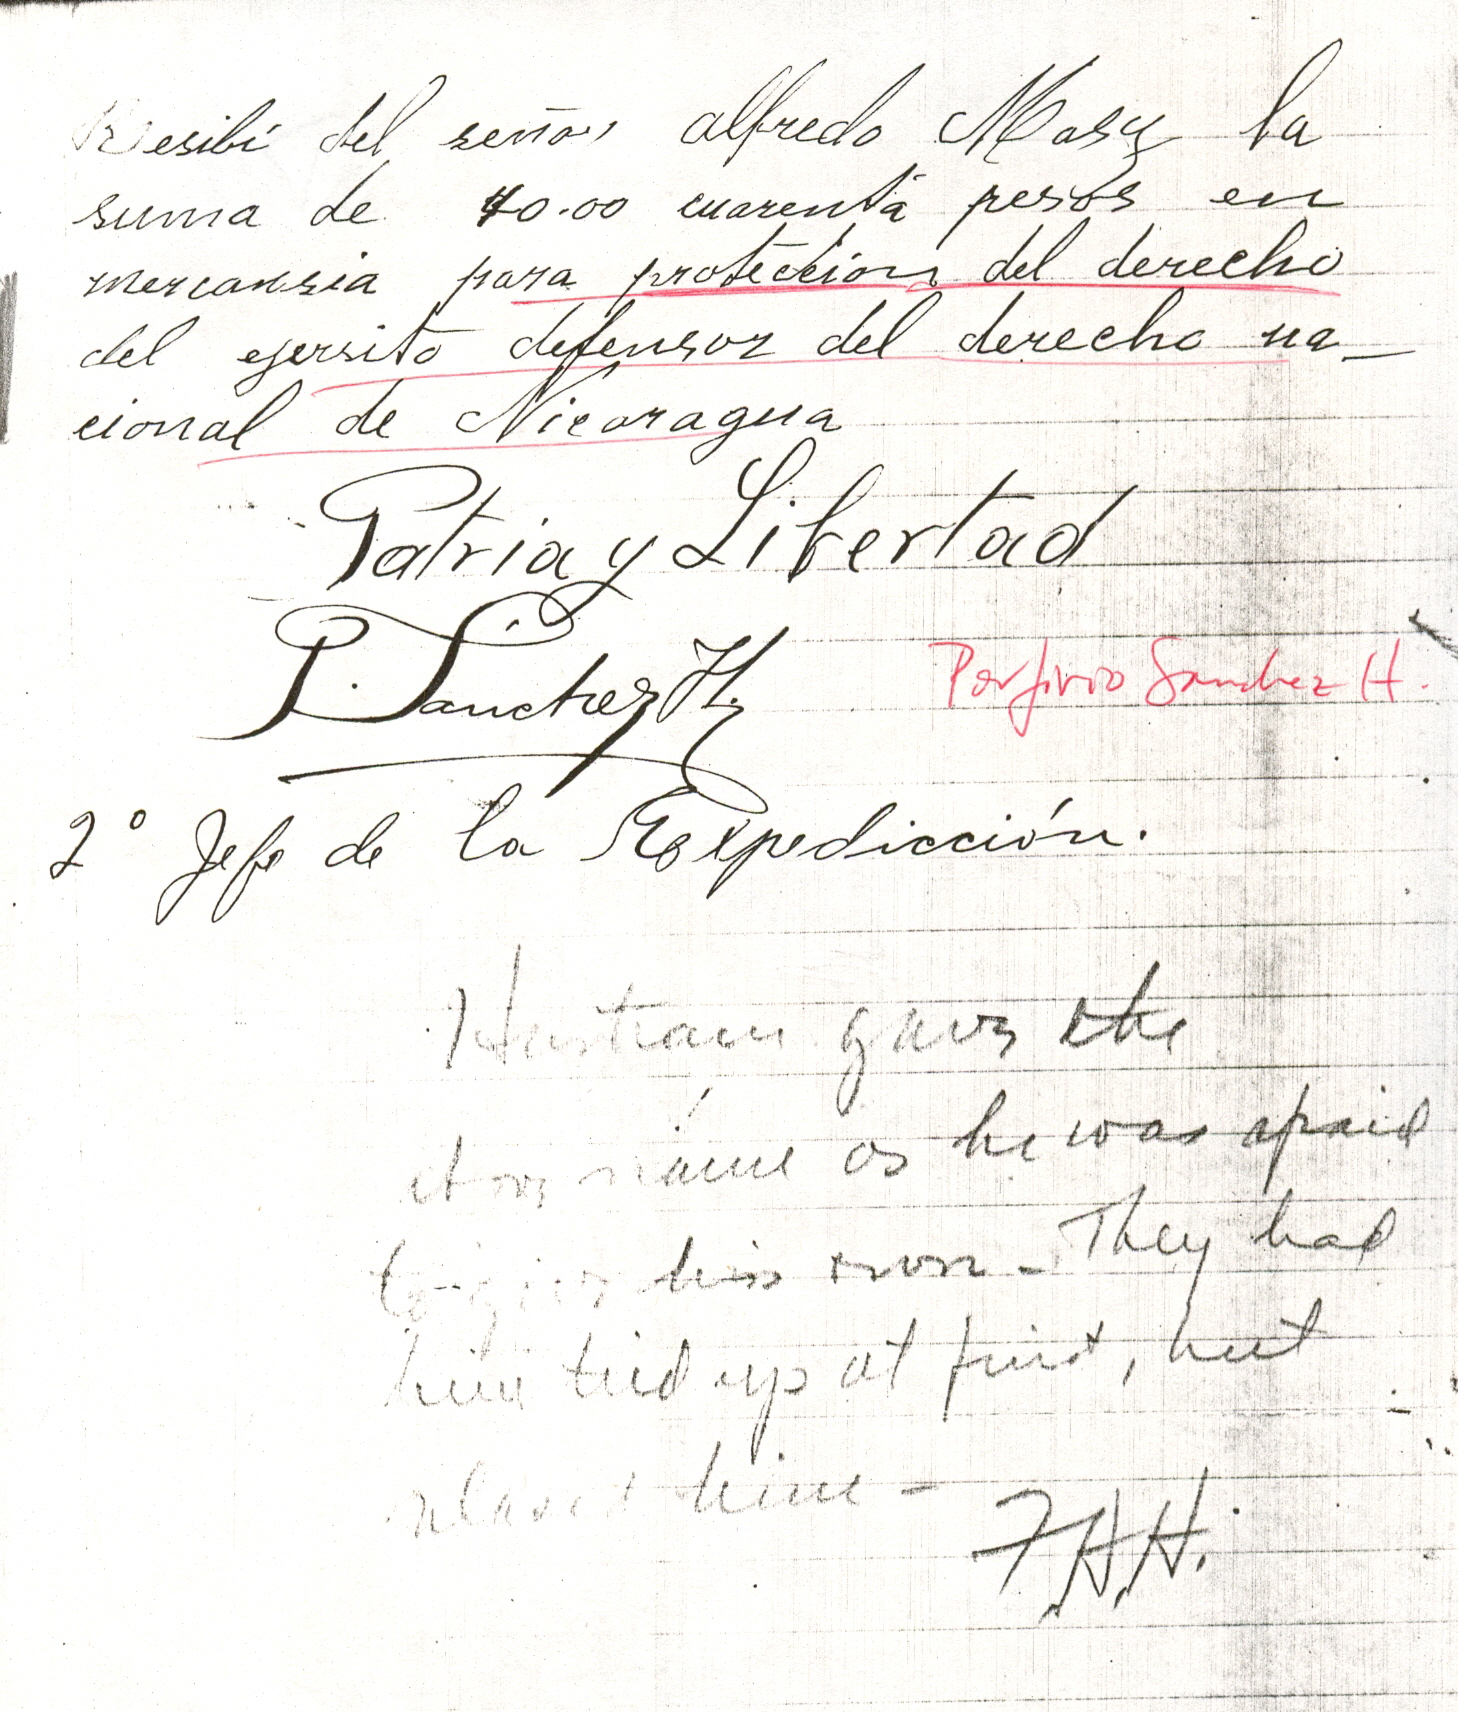 Resibí del señor alfredo Mosy la
suma de 40.00 cuarenta pesos en
mercansia para protección del derecho
del ejersito defensor del derecho na-
cional de Nicaragua
Patria y Libertad
P. Sanchez H.
Porfirio Sanchez H.
2º Jefe de la Expedicción.
gave the
name as he was afraid
to give his own - They had
him tied up at first, but
him -
F.H.H.